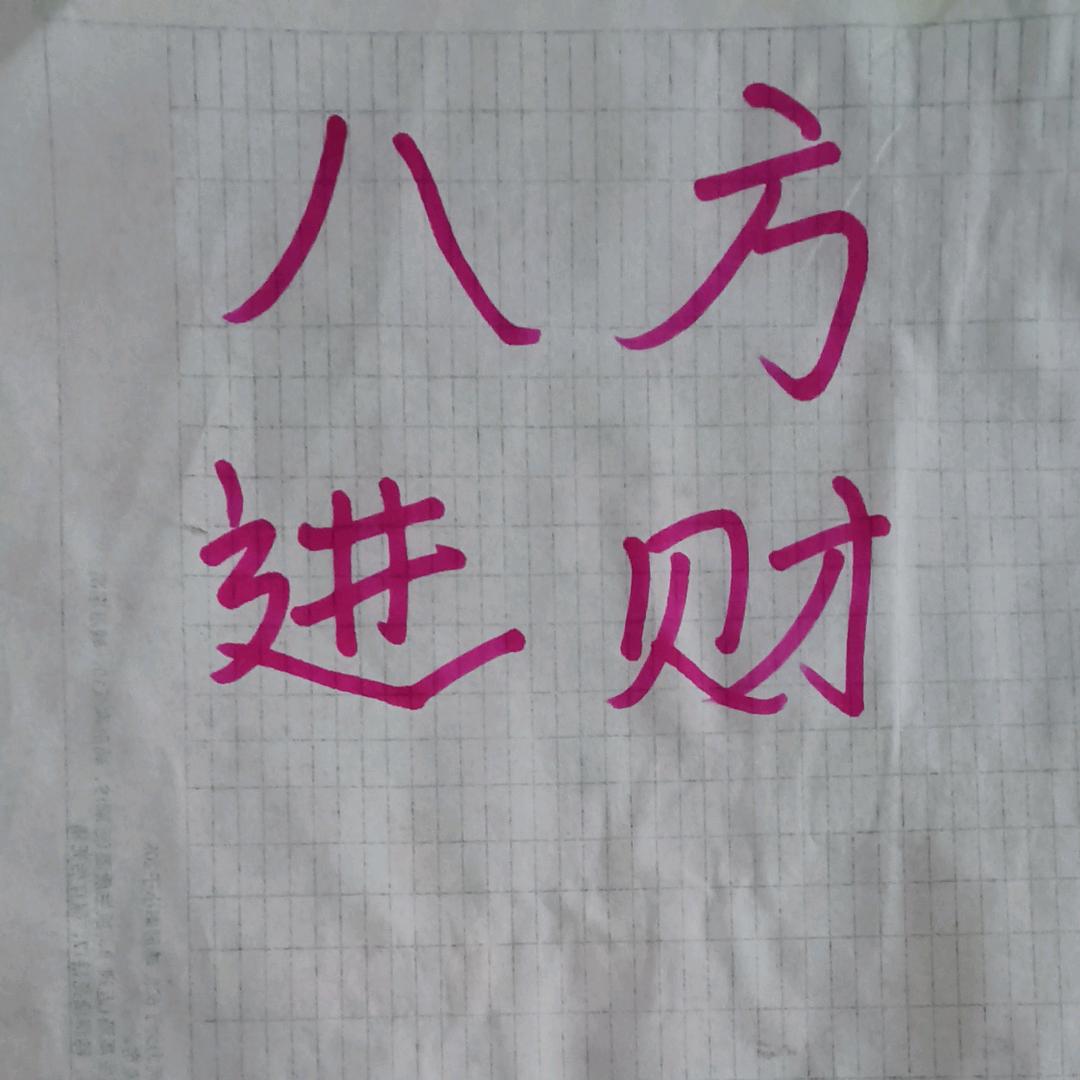 八方
进财